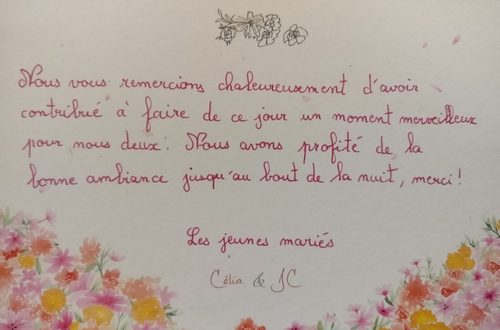 Nous vous remercions chaleureusement d'avoir
contribué à faire de ce jour un moment merveilleux
pour nous deux. Nous avons profité de la
bonne ambiance jusqu'au bout de la nuit, merci !
Les jeunes mariés
Célia & JC